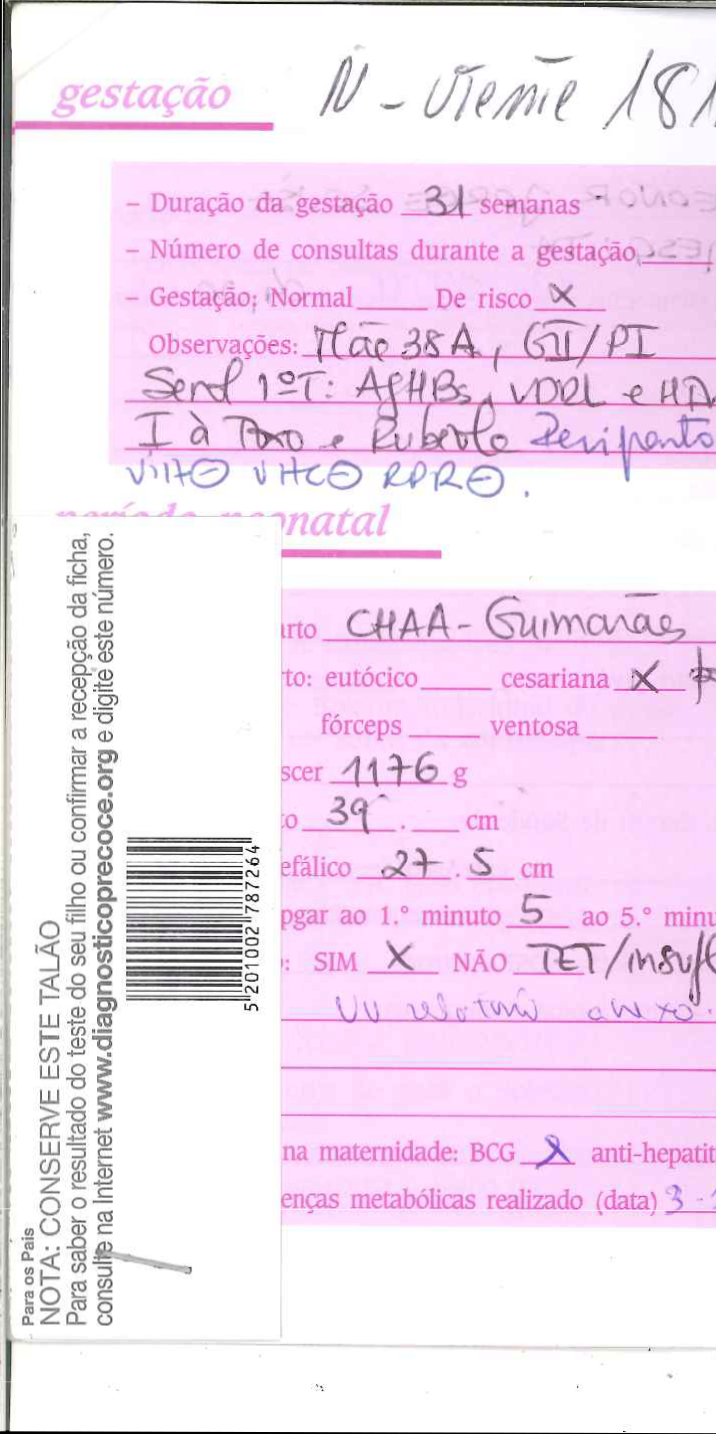 gestação
N - Utente 181
– Duração da gestação 31 semanas
– Número de consultas durante a gestação
– Gestação: Normal De risco X
Observações: Mãe 38A, GII/PI
1ºT: AgHBs, VDRL e
I à Toxo e Rubéola Periparto
VIH⊖ VHC⊖ RPR⊖.
período neonatal
arto CHAA - Guimarães
to: eutócico cesariana X
fórceps ventosa
scer 1176 g
o 39 cm
efálico 27.5 cm
pgar ao 1.º minuto 5 ao 5.º minu
: SIM X NÃO TET/insufl
relatório anexo.
na maternidade: BCG anti-hepatit
enças metabólicas realizado (data) 3 -
Para os Pais
NOTA: CONSERVE ESTE TALÃO
Para saber o resultado do teste do seu filho ou confirmar a recepção da ficha,
consulte na Internet www.diagnosticoprecoce.org e digite este número.
5 201002 787264